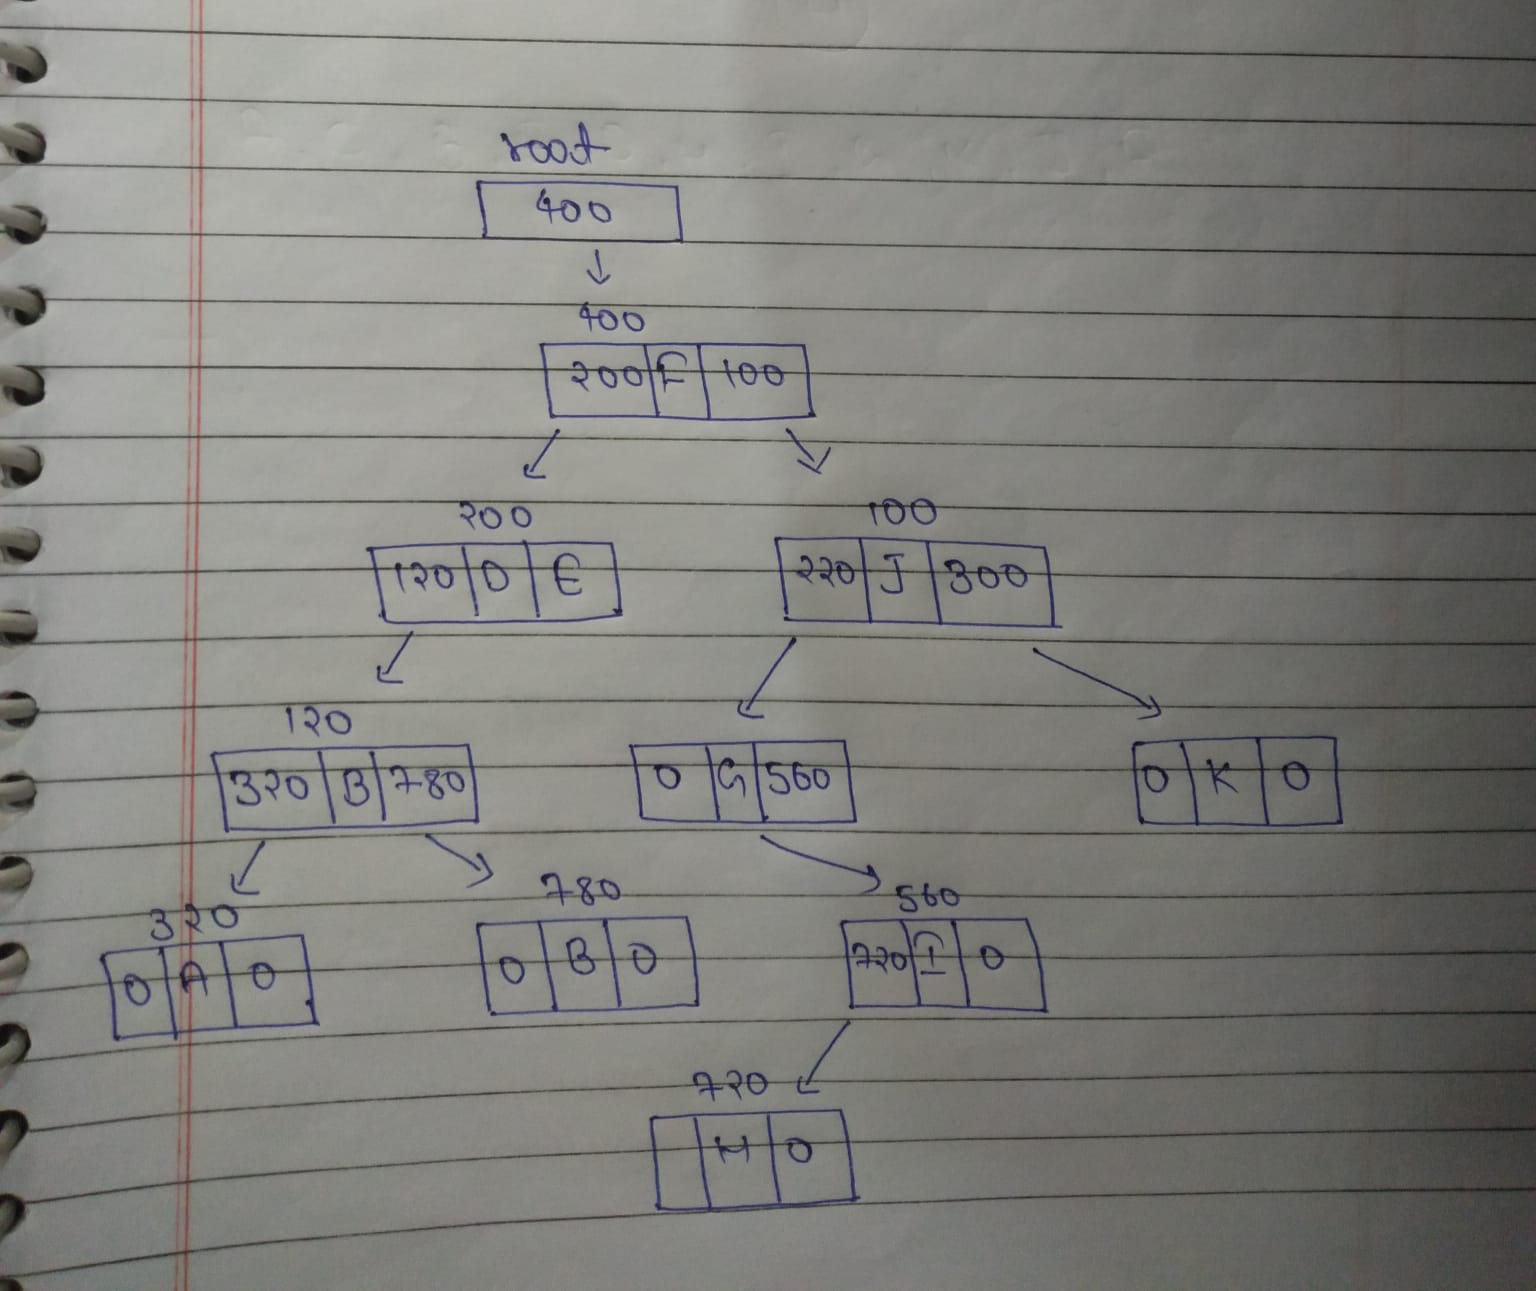 root
400
400
200 F 100
200 100
120 D E
220 J 300
120
320 B 780
0 G 560
0 K 0
320 780 560
0 A 0
0 B 0
720 I 0
720
H 0